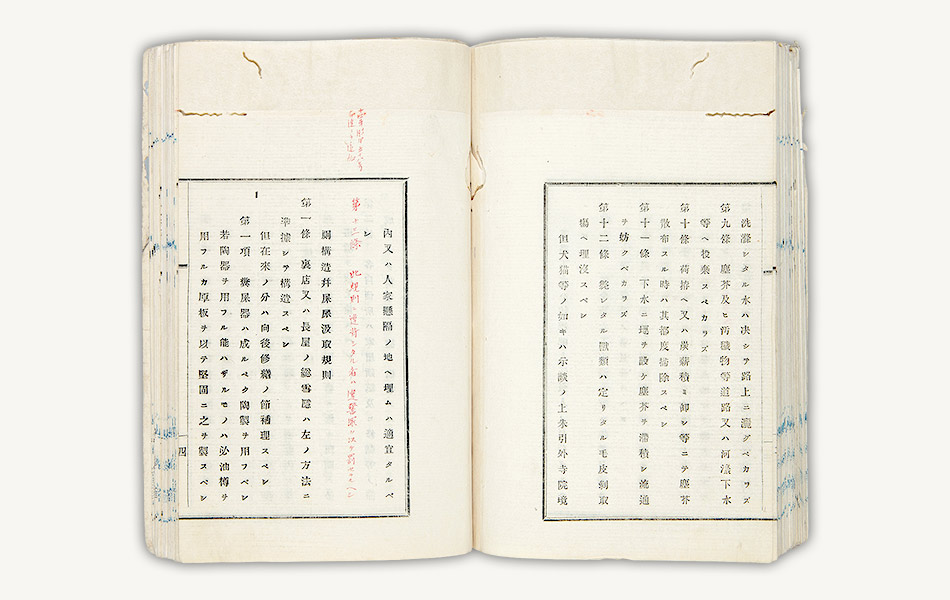 洗滌シタル水ハ决シテ路上ニ灑グベカラズ
第九條 塵芥及ヒ汚穢物等道路又ハ河溝下水
等ヘ投棄スベカラズ
第十條 荷拵ヘ又ハ炭薪積ミ卸シ等ニテ塵芥
散布スル時ハ其都度掃除スベシ
第十一條 下水ニ堰ヲ設ケ塵芥ヲ潴積シ流通
ヲ妨クベカラズ
第十二條 斃シタル獸類ハ定リタル毛皮剥取
塲ヘ埋沒スベシ
但犬猫等ノ如キハ示談ノ上朱引外寺院境
內又ハ人家懸隔ノ地ヘ埋ムハ適宜タルベ
シ
第十三條 此規則ニ違背シタル者ハ違警罪ニ依テ罰セラルヘシ
厠構造幷屎尿汲取規則
第一條 裏店又ハ長屋ノ総雪隱ハ左ノ方法ニ
準據シテ構造スベシ
但在來ノ分ハ向後修繕ノ節補理スベシ
第一項 糞屎器ハ成ルベク陶製ヲ用フベシ
若陶器ヲ用フル能ハザルモノハ必油樽ヲ
用フルカ厚板ヲ以テ堅固ニ之ヲ製スベシ
四